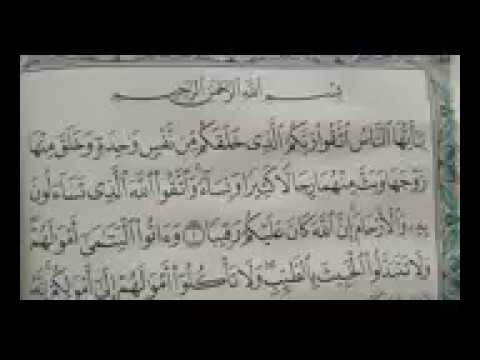 بِسْمِ اللَّهِ الرَّحْمَٰنِ الرَّحِيمِ
يَا أَيُّهَا النَّاسُ اتَّقُوا رَبَّكُمُ الَّذِي خَلَقَكُمْ مِنْ نَفْسٍ وَاحِدَةٍ وَخَلَقَ مِنْهَا
زَوْجَهَا وَبَثَّ مِنْهُمَا رِجَالًا كَثِيرًا وَنِسَاءً وَاتَّقُوا اللَّهَ الَّذِي تَسَاءَلُونَ
بِهِ وَالْأَرْحَامَ إِنَّ اللَّهَ كَانَ عَلَيْكُمْ رَقِيبًا ١ وَآتُوا الْيَتَامَىٰ أَمْوَالَهُمْ
وَلَا تَتَبَدَّلُوا الْخَبِيثَ بِالطَّيِّبِ وَلَا تَأْكُلُوا أَمْوَالَهُمْ إِلَىٰ أَمْوَالِكُمْ إِنَّهُ